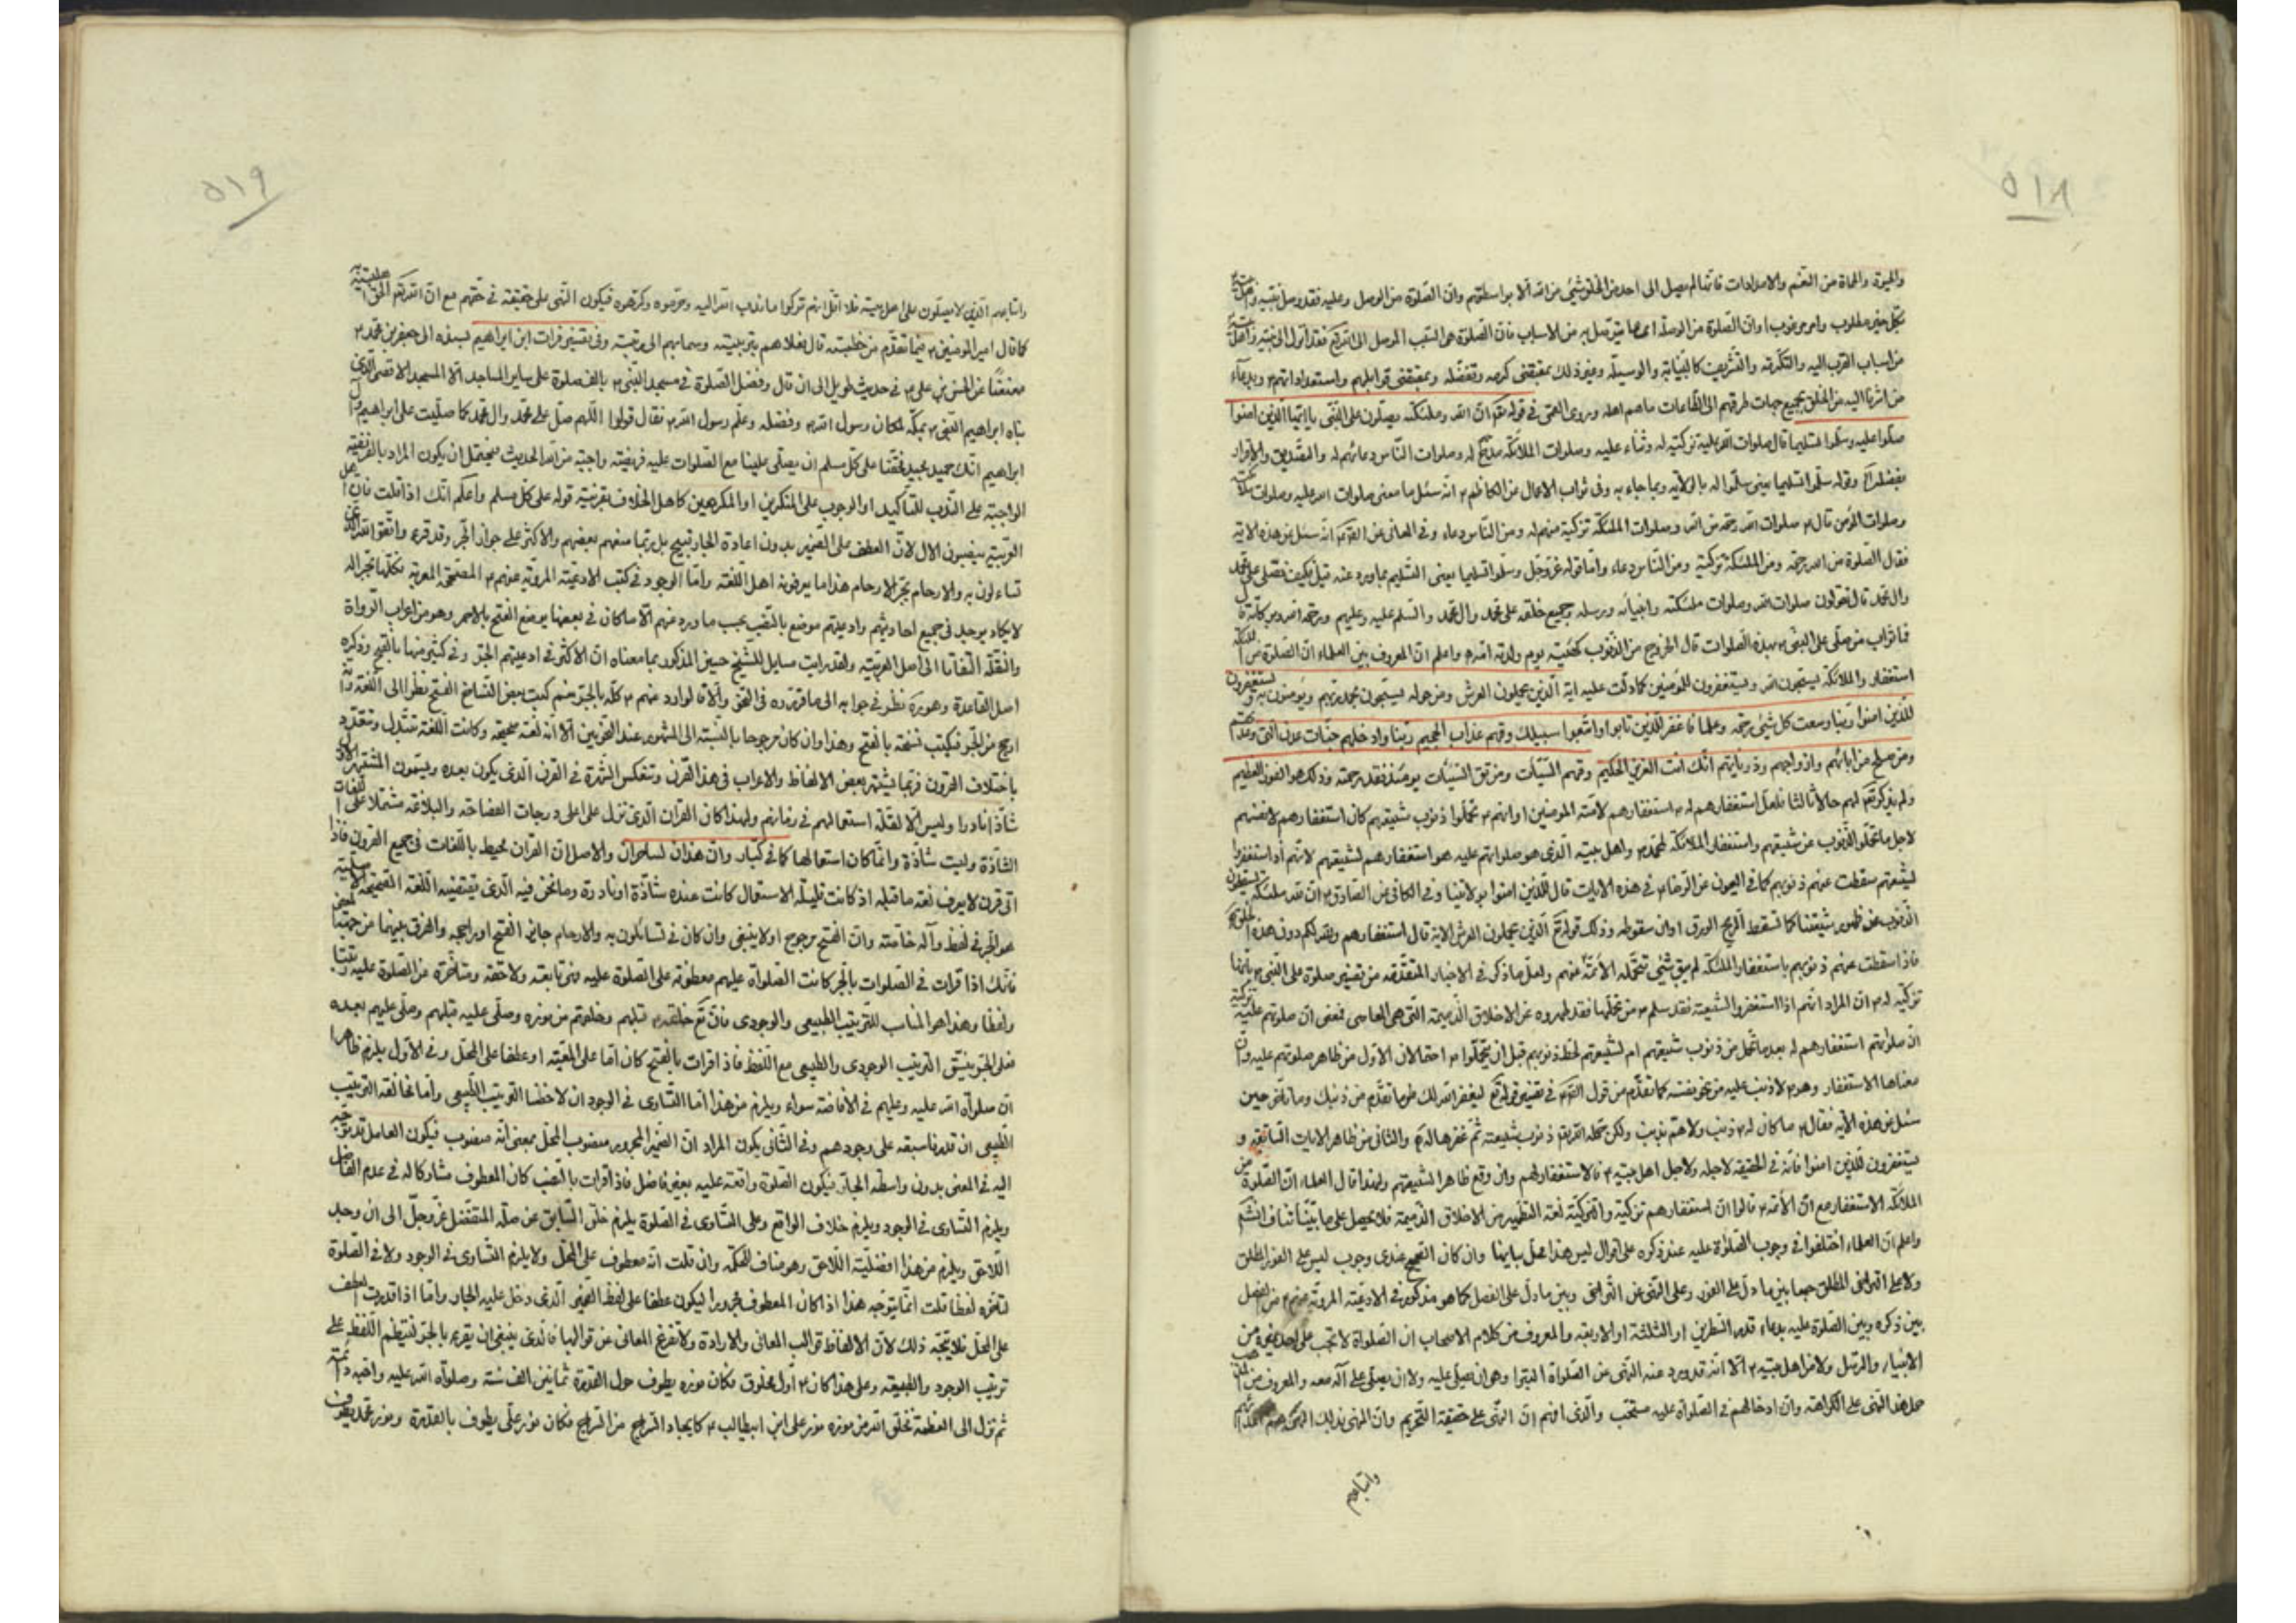 ٥١٨
والحيوة والمماة من النعم والامدادات فانما لم يصل الى احد من الخلق شئ من الله الا بواسطتهم وان الصلوة من الوصل وعليه فقد وصل نبيه واهل بيته
بكل خير مطلوب وامر مرغوب او ان الصلوة من الوصلة اى ما يتوصل به من الاسباب فان الصلوة هى السبب الموصل الى الله
من اسباب القرب اليه والتكرمة والتشريف كالنيابة والوسيلة وغير ذلك بمقتضى كرمه وتفضله وبمقتضى قوابلهم واستعداداتهم وبدعاء
من اشرنا اليه من الخلق بجميع جهات طرقهم الى الطاعات ما هم اهله وروى القمى في قوله تعالى ان الله وملئكته يصلون على النبى يا ايها الذين امنوا
صلوا عليه وسلموا تسليما قال صلوات الله عليه تزكية له وثناء عليه وصلوات الملائكة مدحهم له وصلوات الناس دعائهم له والتصديق والاقرار
بفضله وقوله سلموا تسليما يعنى سلموا له بالولاية وبما جاء به وفى ثواب الاعمال عن الكاظم ع انه سئل ما معنى صلوات الله عليه وصلوات ملئكته
وصلوات المؤمن قال ع صلوات الله رحمة من الله وصلوات الملئكة تزكية منهم له ومن الناس دعاء وفى المعانى عن الصادق ع انه سئل عن هذه الاية
فقال الصلوة من الله رحمة ومن الملئكة تزكية ومن الناس دعاء واما قوله عز وجل وسلموا تسليما يعنى التسليم بما ورد عنه قيل فكيف نصلى على محمد
وال محمد قال تقولون صلوات الله وصلوات ملئكته وانبيائه ورسله وجميع خلقه على محمد وال محمد والسلم عليه وعليهم ورحمة الله وبركاته قال
فما ثواب من صلى على النبى ص بهذه الصلوات قال الخروج من الذنوب كهيئة يوم ولدته امه واعلم ان المعروف بين العلماء ان الصلوة من الملئكة
استغفار والملائكة يسبحون الله ويستغفرون للمؤمنين كما دلت عليه اية الذين يحملون العرش ومن حوله يسبحون بحمد ربهم ويؤمنون به ويستغفرون
للذين امنوا ربنا وسعت كل شئ رحمة وعلما فاغفر للذين تابوا واتبعوا سبيلك وقهم عذاب الجحيم ربنا وادخلهم جنات عدن التى وعدتهم
ومن صلح من ابائهم وازواجهم وذرياتهم انك انت العزيز الحكيم وقهم السيئات ومن تق السيئات يومئذ فقد رحمته وذلك هو الفوز العظيم
ولم يذكر لهم حالا ثالثا فلعل استغفارهم له ص استغفارهم لامته المؤمنين او انهم ع تحملوا ذنوب شيعتهم كان استغفارهم لانفسهم
لاجل ما تحملوا الذنوب من شيعتهم واستغفار الملائكة لمحمد ص واهل بيته الذى هو صلواتهم عليه هو استغفارهم لشيعتهم لانهم اذا استغفروا
لشيعتهم سقطت عنهم ذنوبهم كما في العيون عن الرضا ع في هذه الايات قال للذين امنوا بولايتنا وفى الكافى عن الصادق ع ان لله ملئكة يسقطون
الذنوب عن ظهور شيعتنا كما تسقط الريح الورق اوان سقوطه وذلك قوله تع الذين يحملون العرش الاية قال استغفارهم والله لكم دون هذه الخلق
فاذا سقطت عنهم ذنوبهم باستغفار الملئكة لم يبق شئ تتحمله الائمة عنهم ولعل ما ذكر في الاخبار المتقدمة من تفسير صلوة على النبى ص بانها
تزكية له ص ان المراد انهم اذا استغفروا لشيعته فقد سلم ص من تحملها فقد طهروه عن الاخلاق الذميمة التى هى المعاصى فمعنى ان صلوتهم عليه تزكية
ان صلوتهم استغفارهم له بعد ما تحمل من ذنوب شيعتهم ام لشيعتهم لحط ذنوبهم قبل ان يتحملوا ع احتمالان الاول من ظاهر صلوتهم عليه وان
معناها الاستغفار وهو ص لا ذنب عليه من نحو نفسه كما تقدم من قول الصادق ع في تفسير قوله تع ليغفر لك الله ما تقدم من ذنبك وما تأخر حين
سئل عن هذه الاية فقال ع ما كان له ص ذنب ولا هم بذنب ولكن حمله الله ذنوب شيعته ثم غفرها له والثانى من ظاهر الايات السابقة و
يستغفرون للذين امنوا فانه في الحقيقة لاجله ولاجل اهل بيته ع فالاستغفار لهم وان وقع ظاهرا لشيعتهم ولهذا قال العلماء ان الصلوة من
الملائكة الاستغفار مع ان الائمة ع قالوا ان استغفارهم تزكية والتزكية لغة التطهير من الاخلاق الذميمة فلا يحصل على ما بينا تناف
واعلم ان العلماء اختلفوا في وجوب الصلوة عليه عند ذكره على اقوال ليس هذا محل بيانها وان كان الصحيح عندى وجوب ليس على الفور المطلق
ولا على التراخى المطلق جمعا بين ما دل على الفور وعلى النهى عن التراخى وبين ما دل على الفصل كما هو مذكور في الادعية المروية عنهم ع من الفصل
بين ذكره وبين الصلوة عليه بدعاء قدر السطرين او الثلثة او الاربعة والمعروف من كلام الاصحاب ان الصلواة لا تجب على احد غيره من
الانبياء والرسل ولا من اهل بيته ع الا انه قد ورد عنه النهى عن الصلواة البتراء وهى ان يصلى عليه ولا ان يصلى على آله معه والمعروف من
حمل هذا النهى على الكراهة وان ادخالهم في الصلواة عليه مستحب والذى افهم ان النهى على حقيقة التحريم وان المنهى بذلك
واتباعهم
٥١٩
واتباعهم الذين لا يصلون على اهل بيته فلا اقل انهم تركوا ما ندب الله اليه وحرموه وكرهوه فيكون النهى على حقيقته في حقهم مع ان
كما قال امير المؤمنين ع فيما تقدم من خطبته قال فعلاهم بتربيته وسما بهم الى رتبته وفى تفسير فرات ابن ابراهيم بسنده الى جعفر بن محمد ع
معنعنا عن الحسن بن على ع في حديث طويل الى ان قال وفضل الصلوة في مسجد النبى ص بالف صلوة على ساير المساجد الا المسجد الاقصى الذى
بناه ابراهيم النبى ع بمكة لمكان رسول الله ص وفضله وعلم رسول الله ص فقال قولوا اللهم صل على محمد وال محمد كما صليت على ابراهيم وال
ابراهيم انك حميد مجيد فحقنا على كل مسلم ان يصلى علينا مع الصلوات عليه فريضة واجبة من الله الحديث فيحتمل ان يكون المراد بالفريضة
الواجبة على الندب للتأكيد او الوجوب على المنكرين او المكرهين كاهل الخلاف بقرينة قوله على كل مسلم واعلم انك اذا قلت فان اهل
العربية ينصبون الال لان العطف على الضمير بدون اعادة الجار قبيح بل ربما منعه بعضهم والاكثر على جواز الجر وقد قرء واتقوا الله الذى
تساءلون به والارحام بجر الارحام هذا ما يعرفونه اهل اللغة واما الوجود في كتب الادعية المروية عنهم ع المصححة المعربة فكلها بجر اله
لا يكاد يوجد في جميع احاديثهم وادعيتهم موضع بالنصب بحسب ما ورد عنهم الا ما كان في بعضها يوضع الفتح بالاحمر وهو من اعراب الرواة
والنقلة التفاتا الى اصل العربية ولقد رايت مسايل للشيخ حسين المذكور بما معناه ان الاكثر في ادعيتهم الجر وفى كثير منها بالفتح وذكره
اصل القاعدة وهو ره نظر في جوابه الى ما قرره في النحو والا فالوارد عنهم ع كله بالجر منهم كتب بعض النساخ الفتح نظرا الى اللغة وانه
ارجح من الجر فيكتب نسخة بالفتح وهذا وان كان مرجوحا بالنسبة الى المشهور عند النحويين الا انه لغة صحيحة وكانت اللغة تتبدل وتتعدد
باختلاف القرون فربما يشتهر بعض الالفاظ والاعراب في هذا القرن وتنعكس الشهرة في القرن الذى يكون بعده ويسمون المشتهر الاول
شاذا نادرا وليس الا لقلة استعمالهم في زمانهم ولهذا كان القرآن الذى نزل على اعلى درجات الفصاحة والبلاغة مشتملا على اللغات
الشاذة وليست شاذة وانما كان استعمالها كما في كبار وان هذان لساحران والاصل ان القران محيط باللغات في جميع القرون فاذا
اتى قرن لا يعرف لغة ما قبله اذ كانت قليلة الاستعمال كانت عنده شاذة او نادرة وما نحن فيه الذى يقتضيه اللغة الصحيحة الاصلية
هو الجر في لفظ وآله خاصة وان الفتح مرجوح او لا ينبغى وان كان في تسائلون به والارحام جايز الفتح او راجحه والفرق بينهما من جهة المعنى
فانك اذا قرات في الصلوات بالجر كانت الصلواة عليهم معطوفة على الصلوة عليه فهى تابعة ولاحقة ومتأخرة من الصلوة عليه
ولفظا وهذا هو المناسب للترتيب الطبيعى والوجودى فان الله تع خلقه ص قبلهم وخلقهم من نوره وصلى عليه قبلهم وصلى عليهم بعده
فعلى الجر يتسق الترتيب الوجودى والطبيعى مع اللفظ فاذا قرات بالفتح كان اما على المعية او عطفا على المحل وفى الاول يلزم ظاهرا
ان صلواة الله عليه وعليهم في الافاضة سواء ويلزم من هذا اما التساوى في الوجود ان لاحظنا الترتيب الطبيعى واما مخالفة الترتيب
الطبيعى ان قلنا سبقه على وجودهم وفى الثانى يكون المراد ان الضمير المجرور منصوب المحل بمعنى انه منصوب فيكون العامل
اليه في المعنى بدون واسطة الجار فيكون الصلوة واقعة عليه بغير فاصل فاذا قرات بالنصب كان المعطوف مشاركا له في عدم الفاصل
ويلزم التساوى في الوجود ويلزم خلاف الواقع وعلى التساوى في الصلوة يلزم خلو السابق عن صلة المتفضل عز وجل الى ان وجد
اللاحق ويلزم من هذا افضلية اللاحق وهو مناف للحكمة وان قلت انه معطوف على المحل ولا يلزم التساوى في الوجود ولا في الصلوة
لتأخره لفظا قلت انما يتوجه هذا اذا كان المعطوف مجرورا ليكون عطفا على لفظ الضمير الذى دخل عليه الجار واما اذا قدرت العطف
على المحل فلا يتجه ذلك لان الالفاظ قوالب المعانى والارادة ولا تفرغ المعانى من قوالبها فالذى ينبغى ان يقرء بالجر لينتظم اللفظ على
ترتيب الوجود والطبيعة وعلى هذا كان ص اول مخلوق فكان نوره يطوف حول القدرة ثمانين الف سنة وصلواة الله عليه واقعة
ثم نزل الى العظمة فخلق الله من نوره نور على ابن ابيطالب ع كايجاد السراج من السراج فكان نور على يطوف بالقدرة ونور محمد يطوف